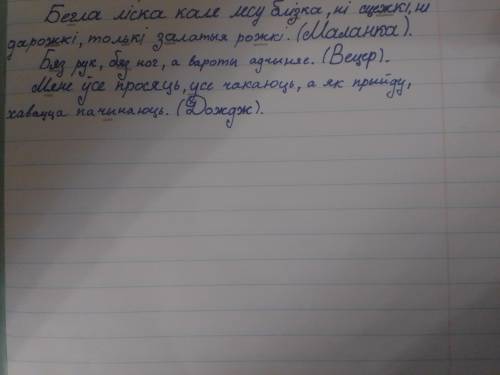 Бегла ліска кале лесу блізка, ні сцежкі, ні
дарожкі, толькі залатыя рожкі. (Маланка).
Бяз рук, бяз ног, а вароты адчыняе. (Вецер).
Мене ўсе просяць, усе чакаюць, а як прыйду,
хавацца пачынаюць. (Дождж).